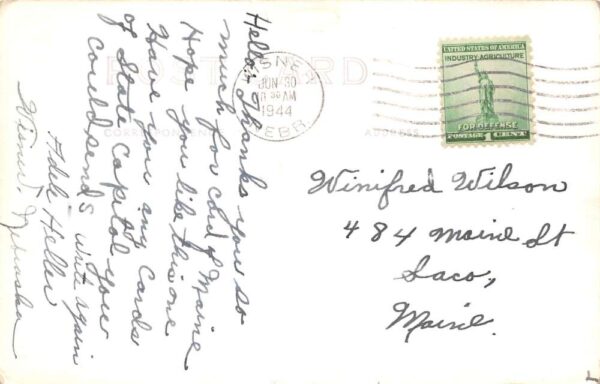 POST CARD
CORRESPONDENCE
ADDRESS
JUN 30
AM
1944
NEBR
UNITED STATES OF AMERICA
INDUSTRY AGRICULTURE
FOR DEFENSE
POSTAGE 1 CENT
Hello: Thanks you so
much for card of Maine
Hope you like this one
Have you any cards
of State Capitol you
could send? Write again
Adele Heller
Wisner, Nebraska
Winifred Wilson
484 Maine St
Saco,
Maine.